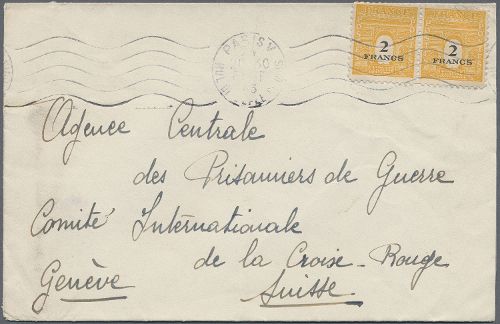 PARIS V
FRANCE FRANCE
2 2
FRANCS FRANCS
Agence Centrale
des Prisonniers de Guerre
Comité Internationale
de la Croise-Rouge
Genève Suisse.